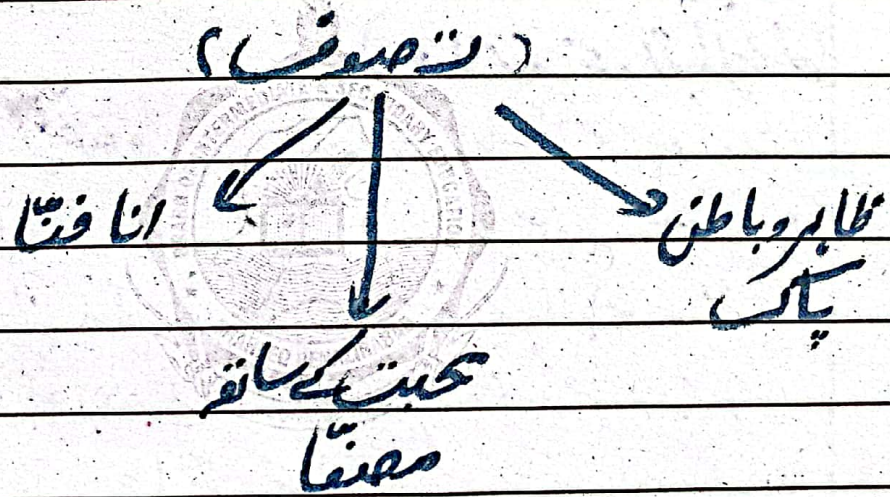 (تصوف)
ظاہر و باطن
پاک
محبت کے ساتھ
مصفّا
انا فنّا